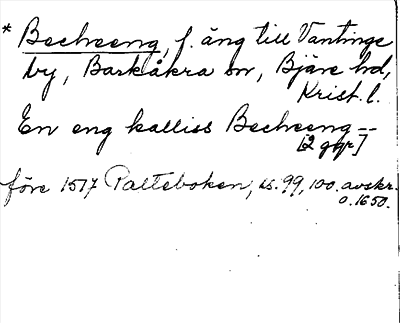 * Beckeeng, f. äng till Vantinge
by, Barkåkra sn, Bjäre hd,
Krist. l.
En eng kalliss Beckeeng --
[2 ggr]
före 1517 Palteboken, s. 99, 100. avskr.
o. 1650.